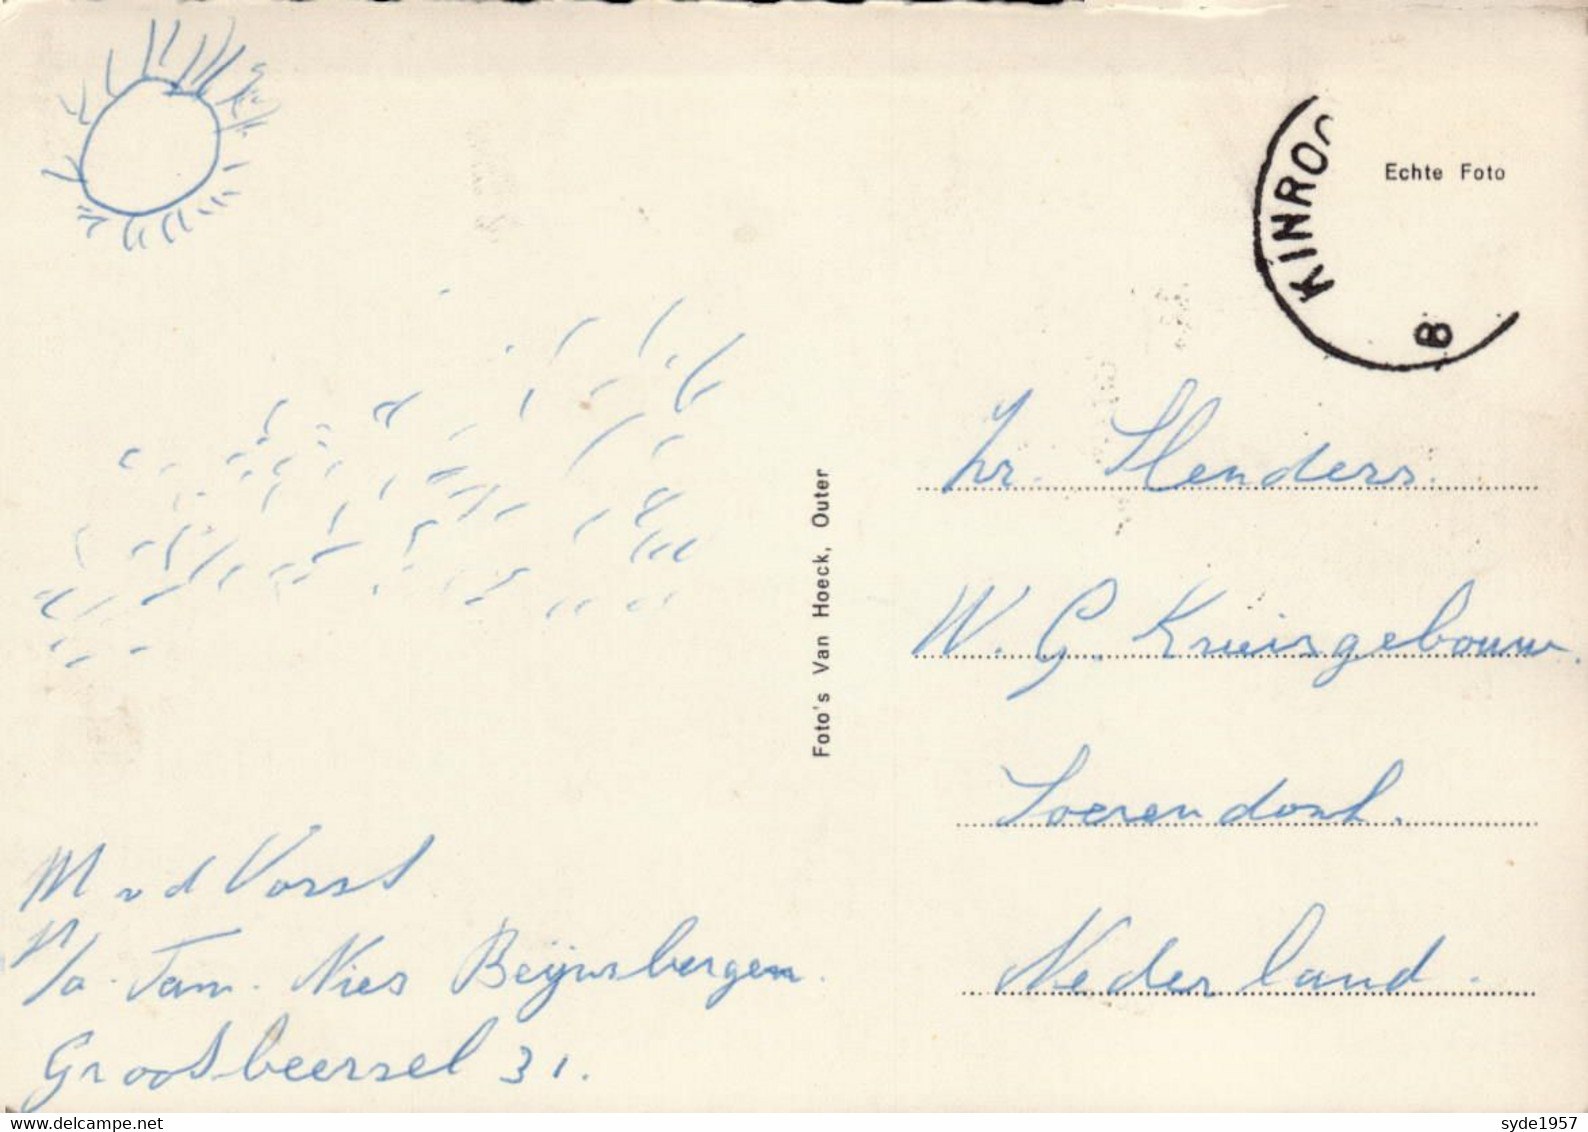 KINROO
B
Echte Foto
Foto's Van Hoeck, Outer
Zr. Slenders.
W. G. Kruisgebouw.
Soerendonk.
Nederland.
M v d Vorst
p/a. Fam. Nies Beijnsbergen.
Grootbeersel 31.
www.delcampe.net
syde1957